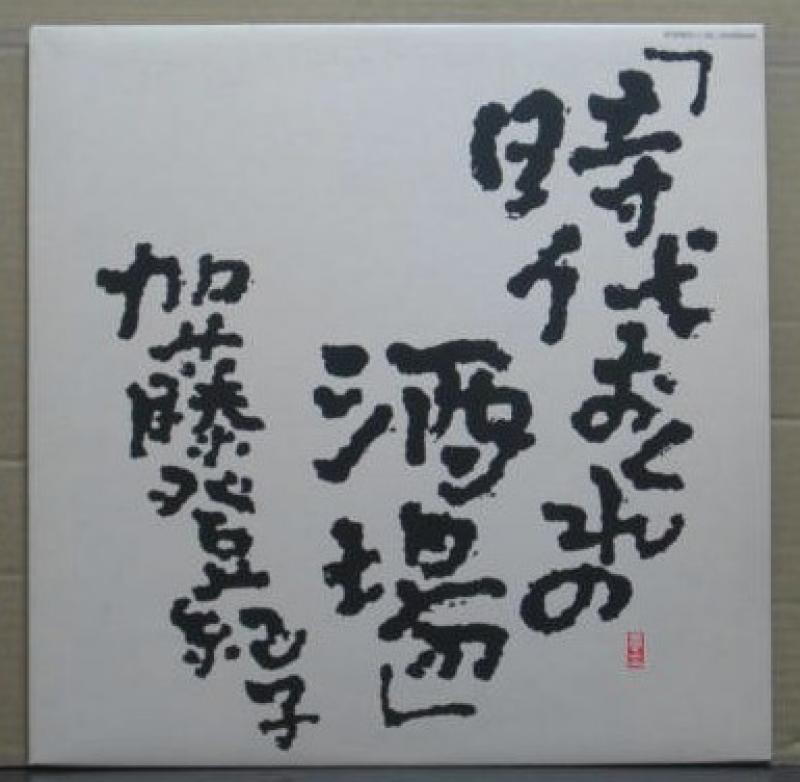 「時代おくれの
酒場」
加藤登紀子